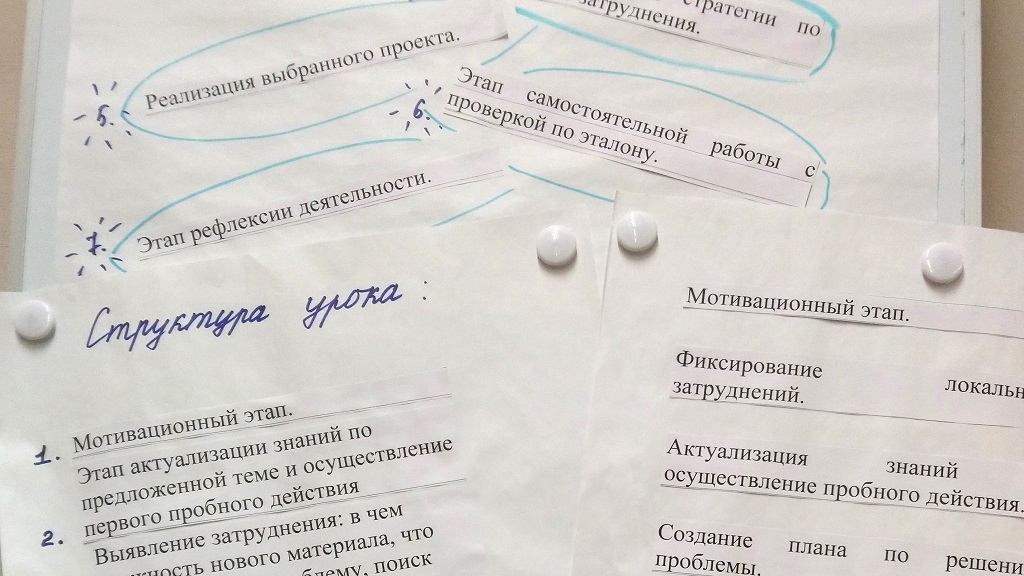 стратегии по
затруднения.
5. Реализация выбранного проекта.
6. Этап самостоятельной работы с
проверкой по эталону.
7. Этап рефлексии деятельности.
Структура урока:
1. Мотивационный этап.
Этап актуализации знаний по
предложенной теме и осуществление
первого пробного действия
2. Выявление затруднения: в чем
нового материала, что
поиск
Мотивационный этап.
Фиксирование
затруднений.
Актуализация знаний
осуществление пробного действия.
Создание плана по
проблемы.